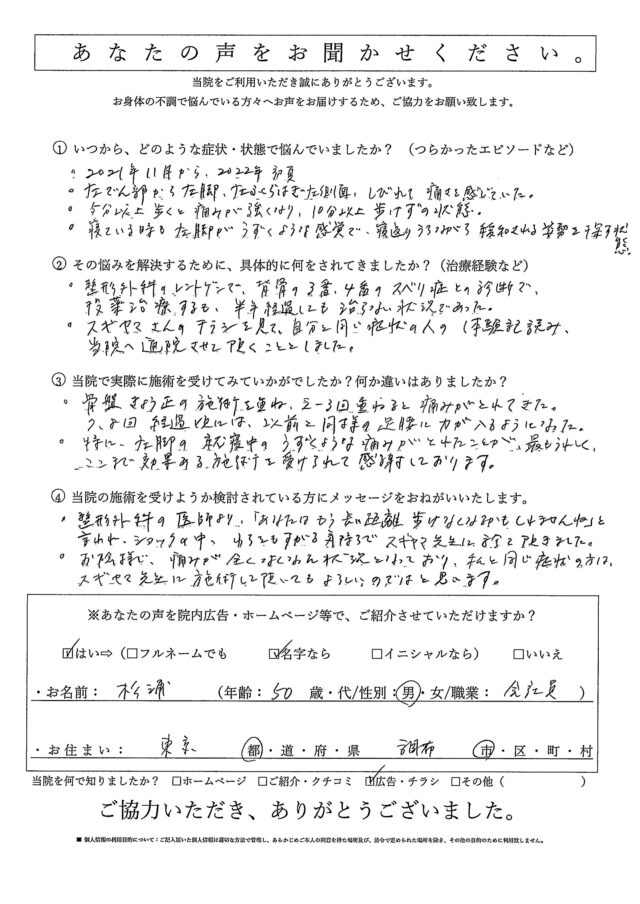 あなたの声をお聞かせください。
当院をご利用いただき誠にありがとうございます。
お身体の不調で悩んでいる方々へお声をお届けするため、ご協力をお願い致します。
① いつから、どのような症状・状態で悩んでいましたか？（つらかったエピソードなど）
・2021年11月から、2022年初夏
・左でん部から左脚、左ふくらはぎ左側面、しびれて痛さを感じていた。
・5分以上歩くと痛みが強くなり、10分以上歩けずの状態。
・寝ている時も左脚がうずくような感覚で、寝返りうちながら緩和される姿勢を探す状態。
② その悩みを解決するために、具体的に何をされてきましたか？（治療経験など）
・整形外科のレントゲンで、背骨の3番、4番のスベリ症との診断で、
投薬治療するも、半年経過しても治らない状況であった。
・スギヤマさんのチラシを見て、自分と同じ症状の人の体験記読み、
当院へ通院させて頂くこととしました。
③ 当院で実際に施術を受けてみていかがでしたか？何か違いはありましたか？
・骨盤きょう正の施術を重ね、2〜3回重ねると痛みがとれてきた。
7、8回経過頃には、以前と同様の足腰に力が入るようになった。
・特に、左脚の就寝中のうずくような痛みがとれたことが、最もうれしく、
ここまで効果ある施術を受けられて感謝しております。
④ 当院の施術を受けようか検討されている方にメッセージをおねがいいたします。
・整形外科の医師より、「あなたはもう長い距離歩けなくなるかもしれませんね」と
言われ、ショックの中、わらをもすがる気持ちでスギヤマ先生に診て頂きました。
・お陰様で、痛みが全くない状況となっており、私と同じ症状の方は、
スギヤマ先生に施術して頂いてもよろしいのではと思います。
※あなたの声を院内広告・ホームページ等で、ご紹介させていただけますか？
☑はい⇨（□フルネームでも ☑名字なら □イニシャルなら） □いいえ
・お名前： 杉浦 （年齢：50 歳・代/性別：男・女/職業： 会社員 ）
・お住まい： 東京 都・道・府・県 調布 市・区・町・村
当院を何で知りましたか？ □ホームページ □ご紹介・クチコミ ☑広告・チラシ □その他（ ）
ご協力いただき、ありがとうございました。
■ 個人情報の利用目的について：ご記入頂いた個人情報は適切な方法で管理し、あらかじめご本人の同意を得た場所及び、法令で定められた場所を除き、その他の目的のために利用致しません。